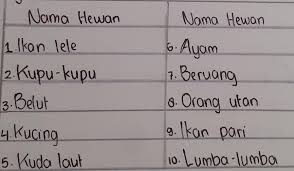 Nama Hewan
1. Ikan lele
2. Kupu-kupu
3. Belut
4. Kucing
5. Kuda laut
Nama Hewan
6. Ayam
7. Beruang
8. Orang utan
9. Ikan pari
10. Lumba-lumba